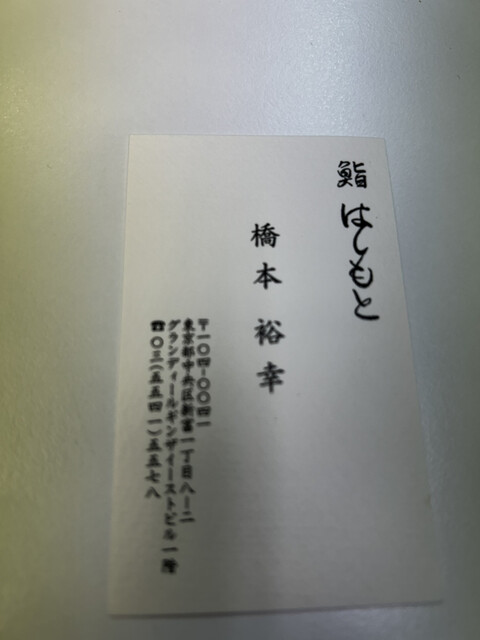 鮨 はしもと
橋本 裕幸
〒一〇四-〇〇四一
東京都中央区新富一丁目八-二
グランディールギンザイーストビル一階
☎〇三(五五四一)五五七八